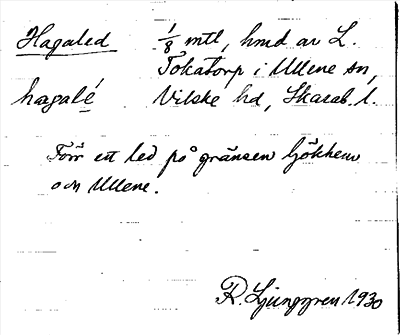 Hagaled 1/8 mtl, hmd av L.
Tokatorp i Ullene sn,
hagalé Vilske hd, Skarab. l.
Förr ett led på gränsen Gökhem
och Ullene.
R. Ljunggren 1930